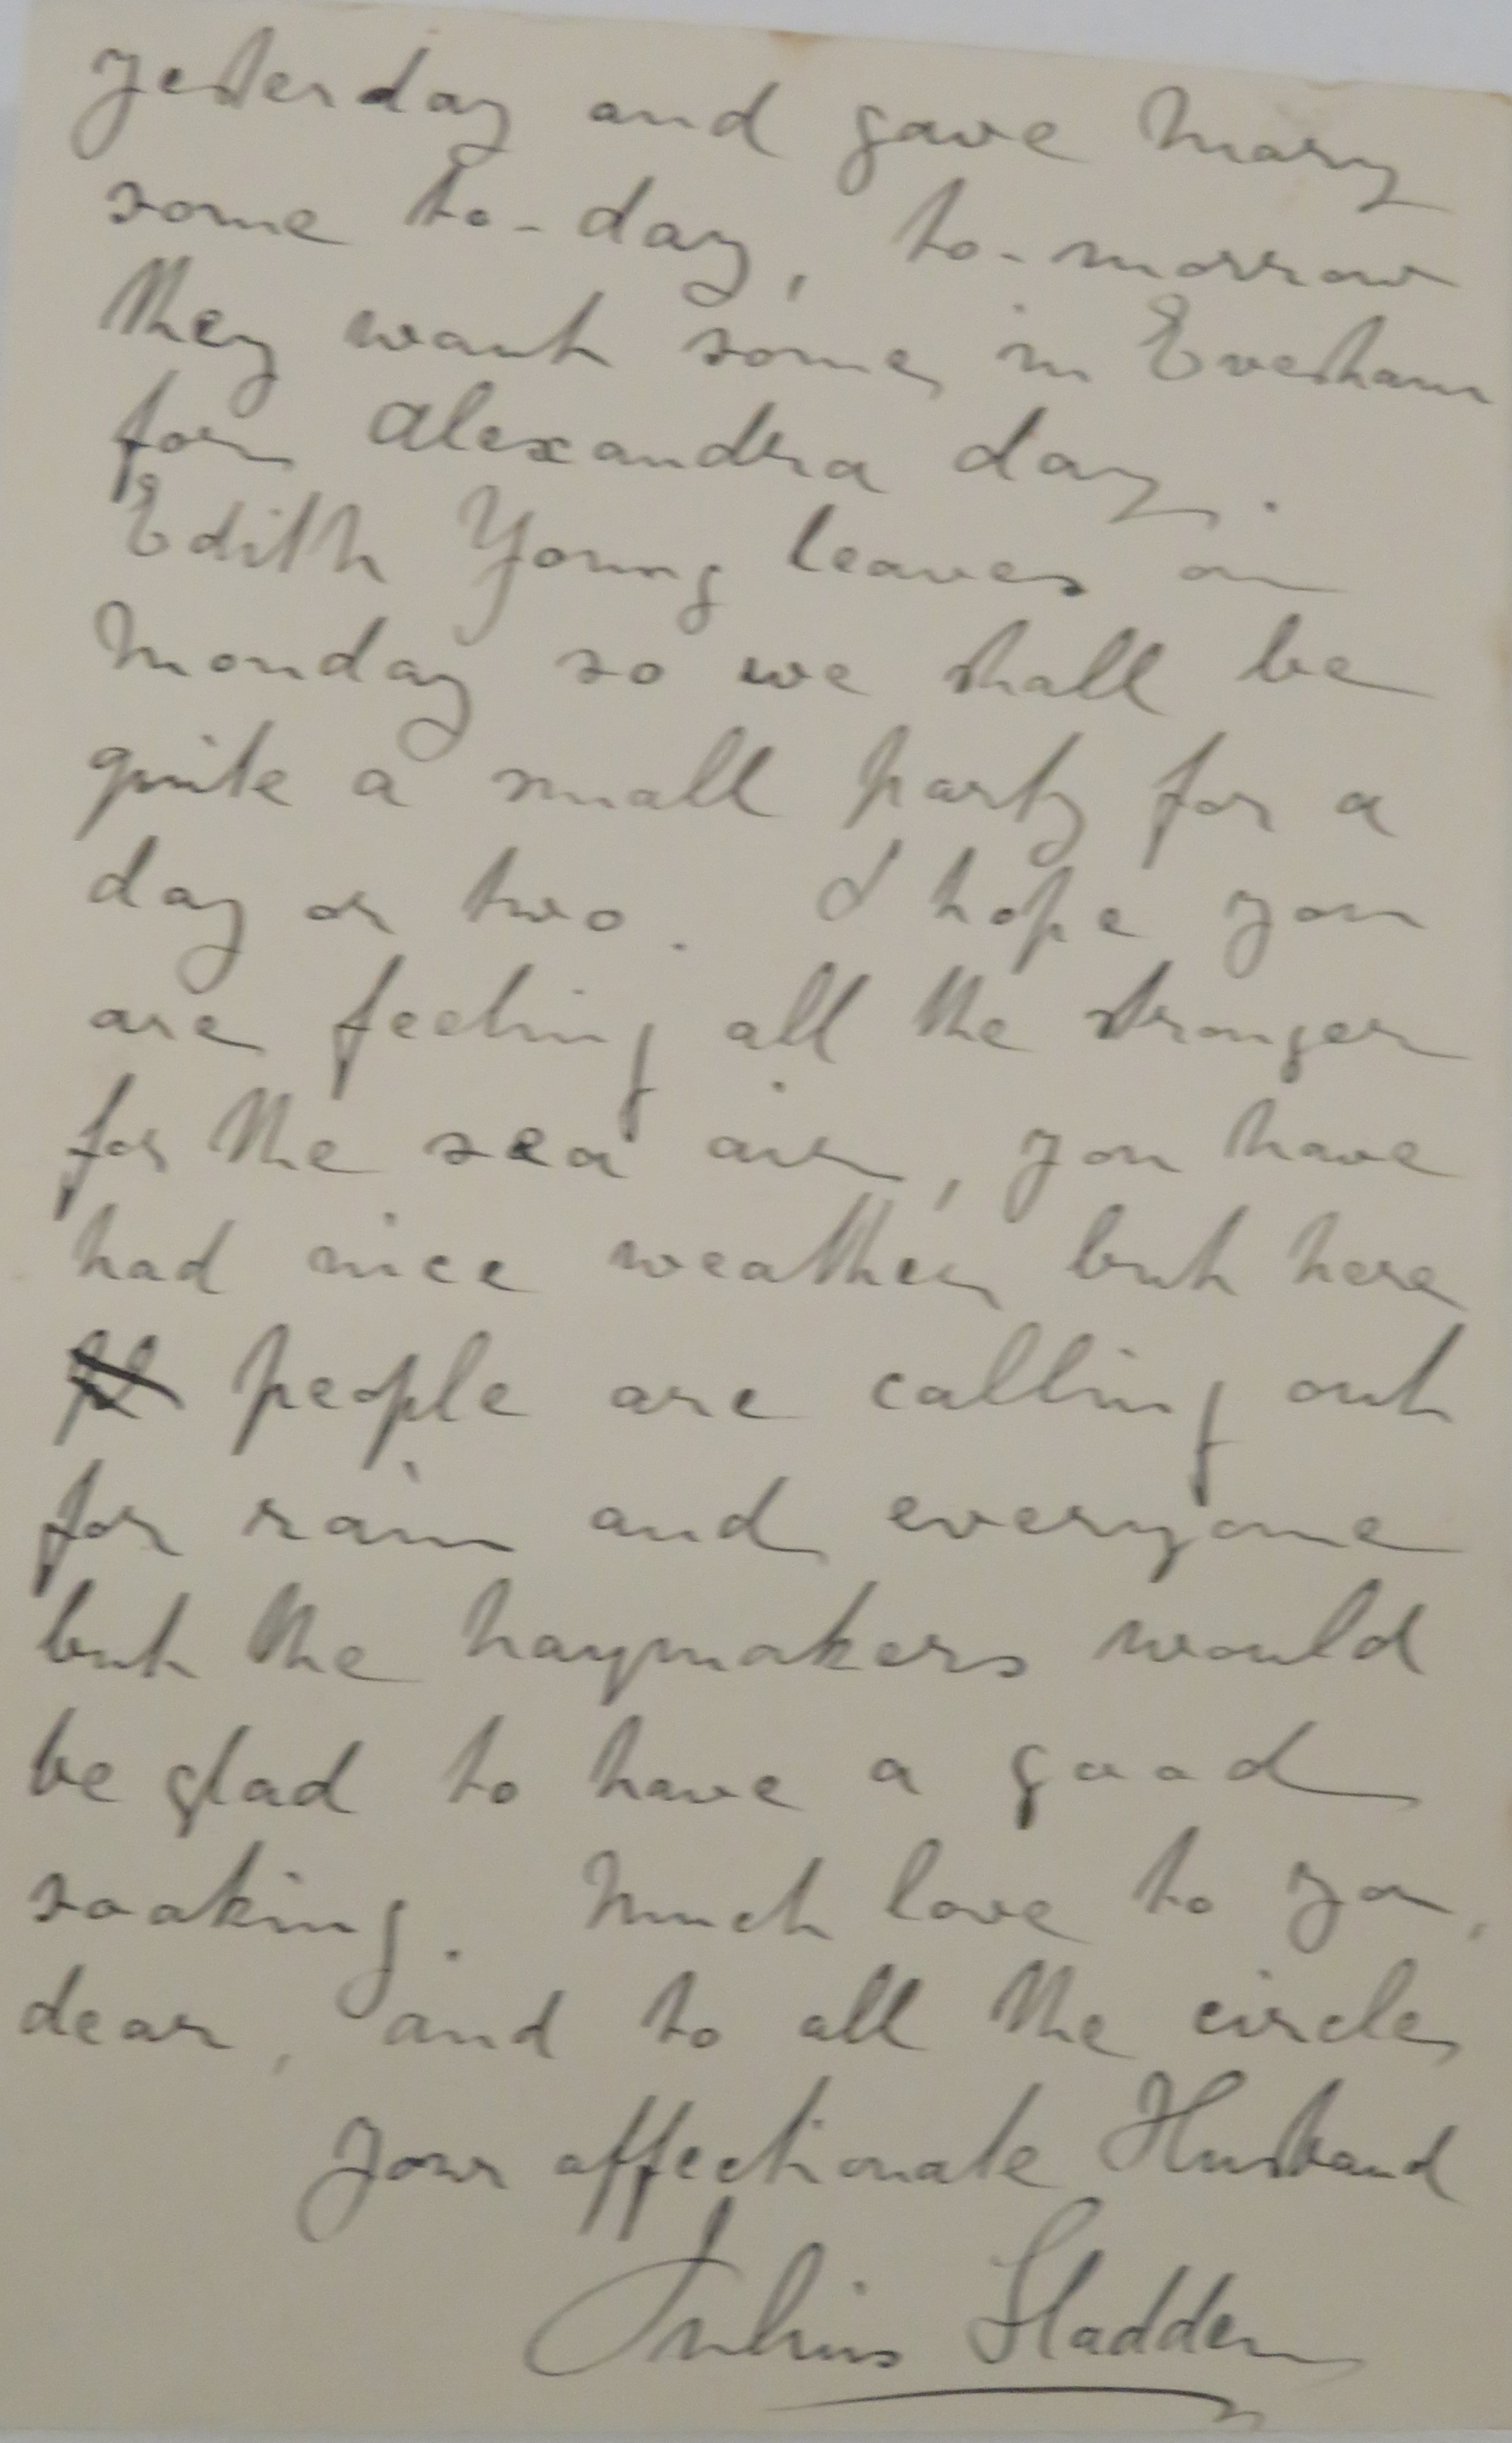 yesterday and gave Mary
some to-day, to-morrow
they want some in Evesham
for Alexandra day.
Edith Young leaves on
Monday so we shall be
quite a small party for a
day or two. I hope you
are feeling all the stronger
for the sea air, you have
had nice weather but here
people are calling out
for rain and everyone
but the haymakers would
be glad to have a good
soaking. Much love to you,
dear, and to all the circle
your affectionate Husband
Julius Sladden